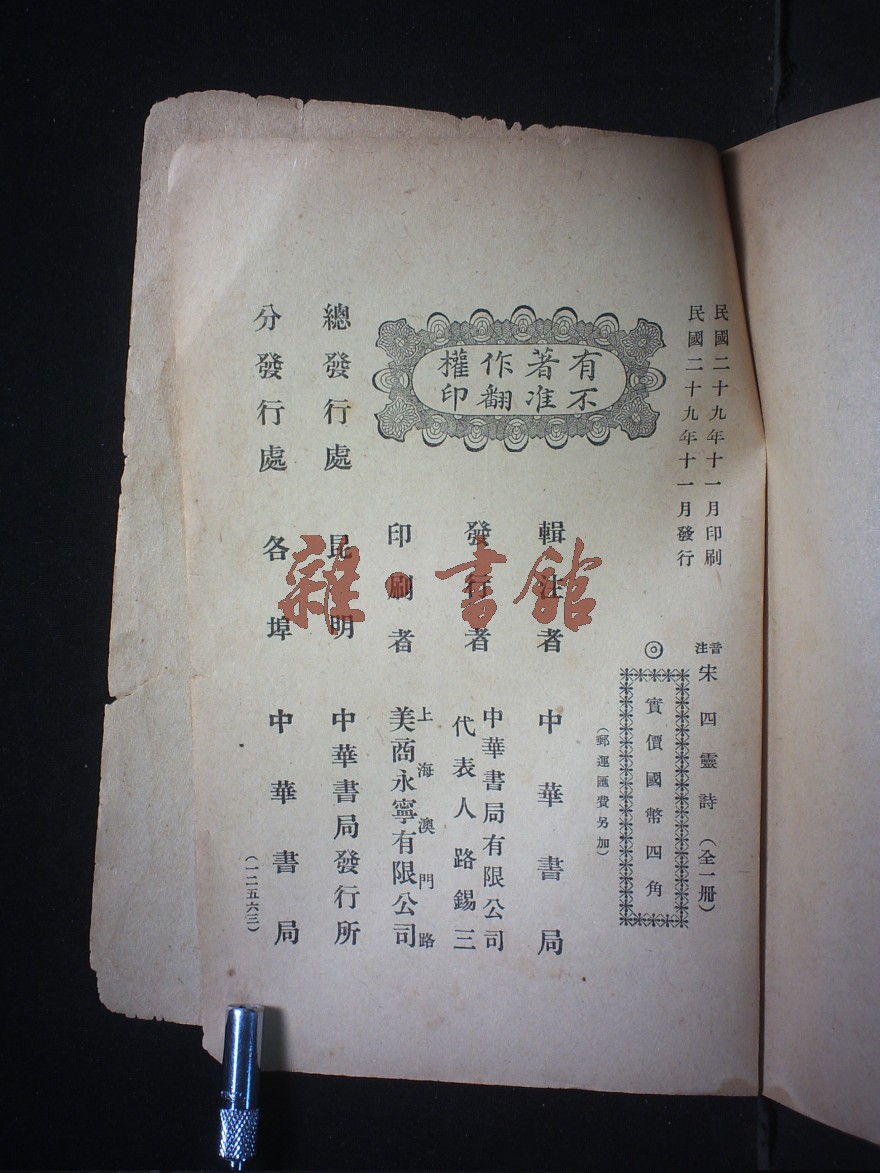 民國二十九年十一月印刷
民國二十九年十一月發行
音注 宋四靈詩（全一冊）
◎
實價國幣四角
（郵運匯費另加）
有著作權
不准翻印
輯注者 中華書局
發行者 中華書局有限公司
代表人路錫三
印刷者 上海澳門路
美商永寧有限公司
總發行處 昆明 中華書局發行所
分發行處 各埠 中華書局
（一二五六三）
雜·書館